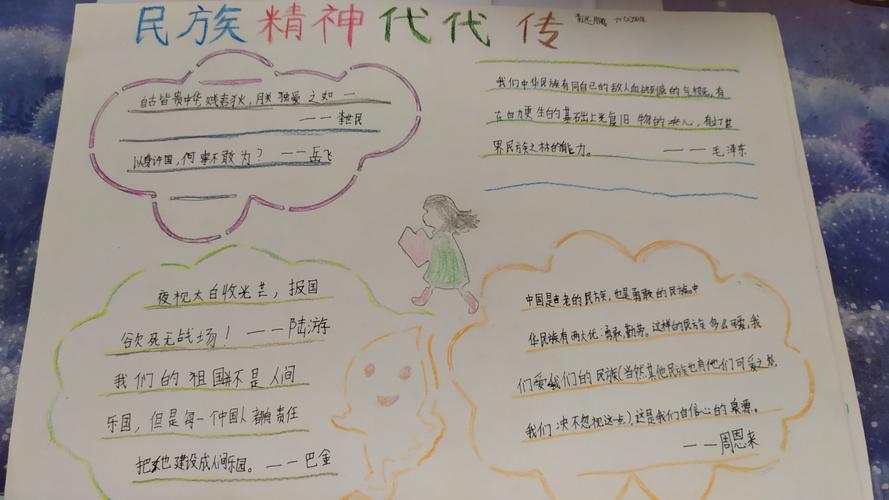 民族精神代代传
自古皆贵中华贱夷狄,朕独爱之如一
——李世民
以身许国,何事不敢为?——岳飞
我们中华民族有同自己的敌人血战到底的气概,有
在自力更生的基础上光复旧物的决心,有
界民族之林的能力。——毛泽东
夜视太白收光芒,报国
欲死无战场!——陆游
我们的祖国并不是人间
乐园,但是每一个中国人都有责任
把她建设成人间乐园。——巴金
中国是古老的民族,也是勇敢的民族。中
华民族有两大优:勇敢,勤劳。这样的民族多么可爱,我
们爱我们的民族(当然其他民族也有他们可爱之处,
我们决不忽视这点),这是我们自信心的泉源。
——周恩来